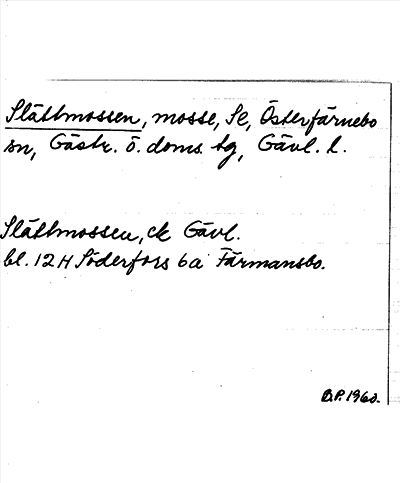 Slättmossen, mosse, Se, Österfärnebo
sn, Gästr. ö. doms. tg, Gävl. l.
Slättmossen, ck Gävl.
bl. 12 H Söderfors 6a Färmansbo.
B.P. 1960.